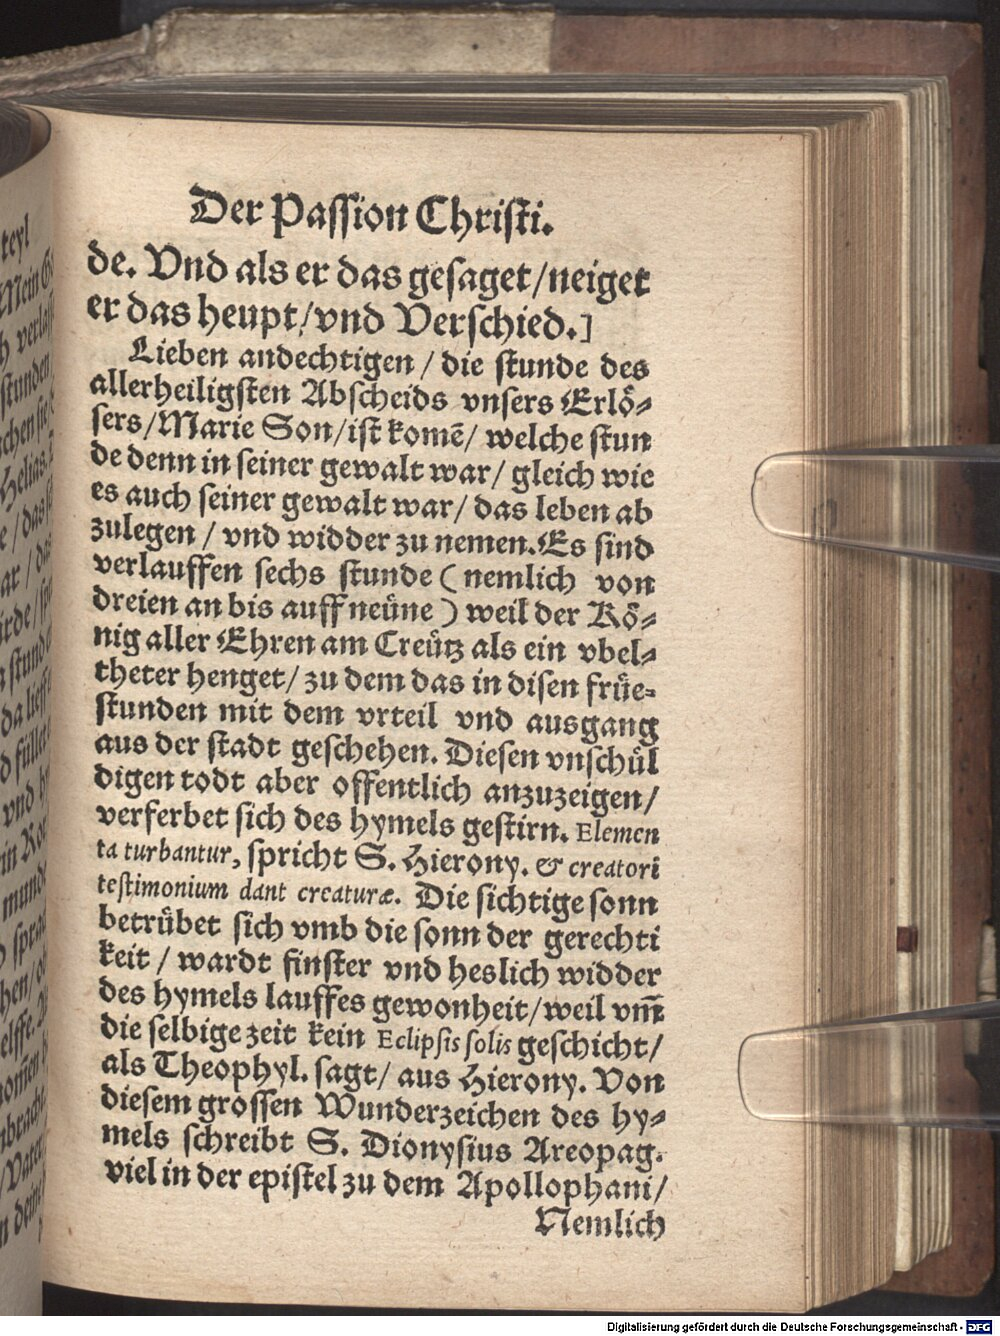 Der Passion Christi.
de. Vnd als er das gesaget/neiget
er das heupt/vnd Verschied.]
Lieben andechtigen / die stunde des
allerheiligsten Abscheids vnsers Erlö⸗
sers/Marie Son/ist komē/ welche stun
de denn in seiner gewalt war/ gleich wie
es auch seiner gewalt war/ das leben ab
zulegen / vnd widder zu nemen. Es sind
verlauffen sechs stunde ( nemlich von
dreien an bis auff neüne ) weil der Kö⸗
nig aller Ehren am Creütz als ein vbel⸗
theter henget/ zu dem das in disen früe⸗
stunden mit dem vrteil vnd ausgang
aus der stadt geschehen. Diesen vnschül
digen todt aber offentlich anzuzeigen/
verferbet sich des hymels gestirn. Elemen
ta turbantur, spricht S. Hierony. & creatori
testimonium dant creaturæ. Die sichtige sonn
betrübet sich vmb die sonn der gerechti
keit / wardt finster vnd heslich widder
des hymels lauffes gewonheit/weil vm̄
die selbige zeit kein Eclipsis solis geschicht/
als Theophyl. sagt/ aus Hierony. Von
diesem grossen Wunderzeichen des hy⸗
mels schreibt S. Dionysius Areopag.
viel in der epistel zu dem Apollophani/
Nemlich
Digitalisierung gefördert durch die Deutsche Forschungsgemeinschaft - DFG